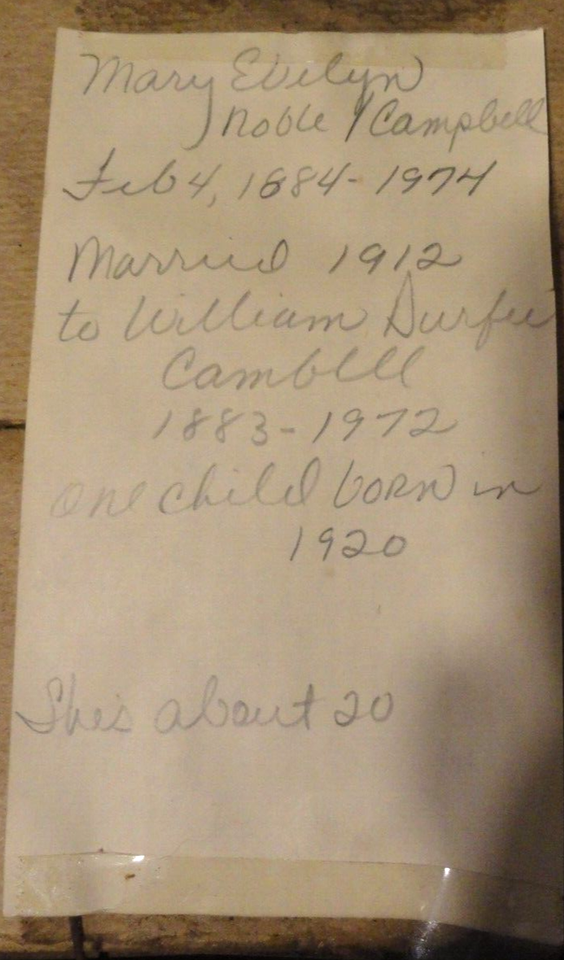 Mary Evelyn
Noble / Campbell
Feb 4, 1884-1974
Married 1912
to William Durfee
Cambell
1883-1972
one child born in
1920
She's about 20